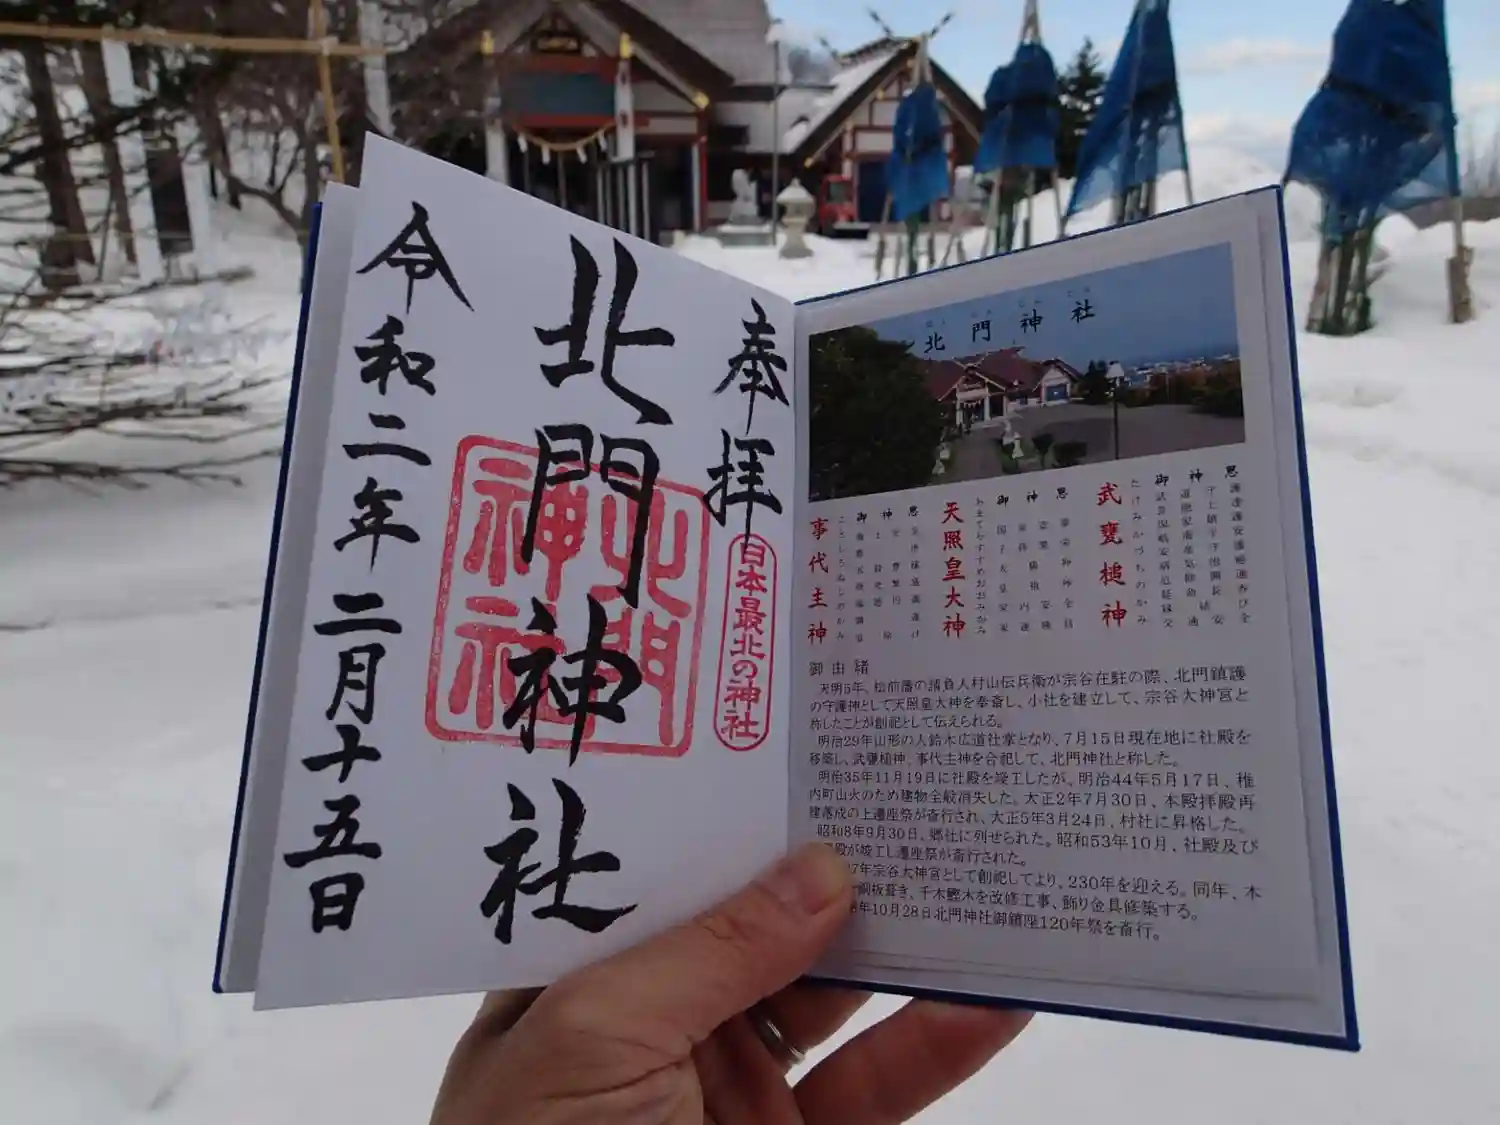 奉拝
日本最北の神社
北門神社
北門神社
令和二年二月十五日
北門神社
武甕槌神
たけみかづちのかみ
御神恩
天照皇大神
御神恩
事代主神
ことしろぬしのかみ
御神恩
御由緒
天明5年、松前藩の請負人村山伝兵衛が宗谷在駐の際、北門鎮護
の守護神として天照皇大神を奉斎し、小社を建立して、宗谷大神宮と
称したことが創祀として伝えられる。
明治29年山形の人鈴木広道社掌となり、7月15日現在地に社殿を
移築し、武甕槌神、事代主神を合祀して、北門神社と称した。
明治35年11月19日に社殿を竣工したが、明治44年5月17日、稚
内町山火のため建物全般消失した。大正2年7月30日、本殿拝殿再
建落成の上遷座祭が斎行され、大正5年3月24日、村社に昇格した。
昭和8年9月30日、郷社に列せられた。昭和53年10月、社殿及び
殿が竣工し遷座祭が斎行された。
7年宗谷大神宮として創祀してより、230年を迎える。同年、本
銅板葺き、千木鰹木を改修工事、飾り金具修築する。
8年10月28日北門神社御鎮座120年祭を斎行。